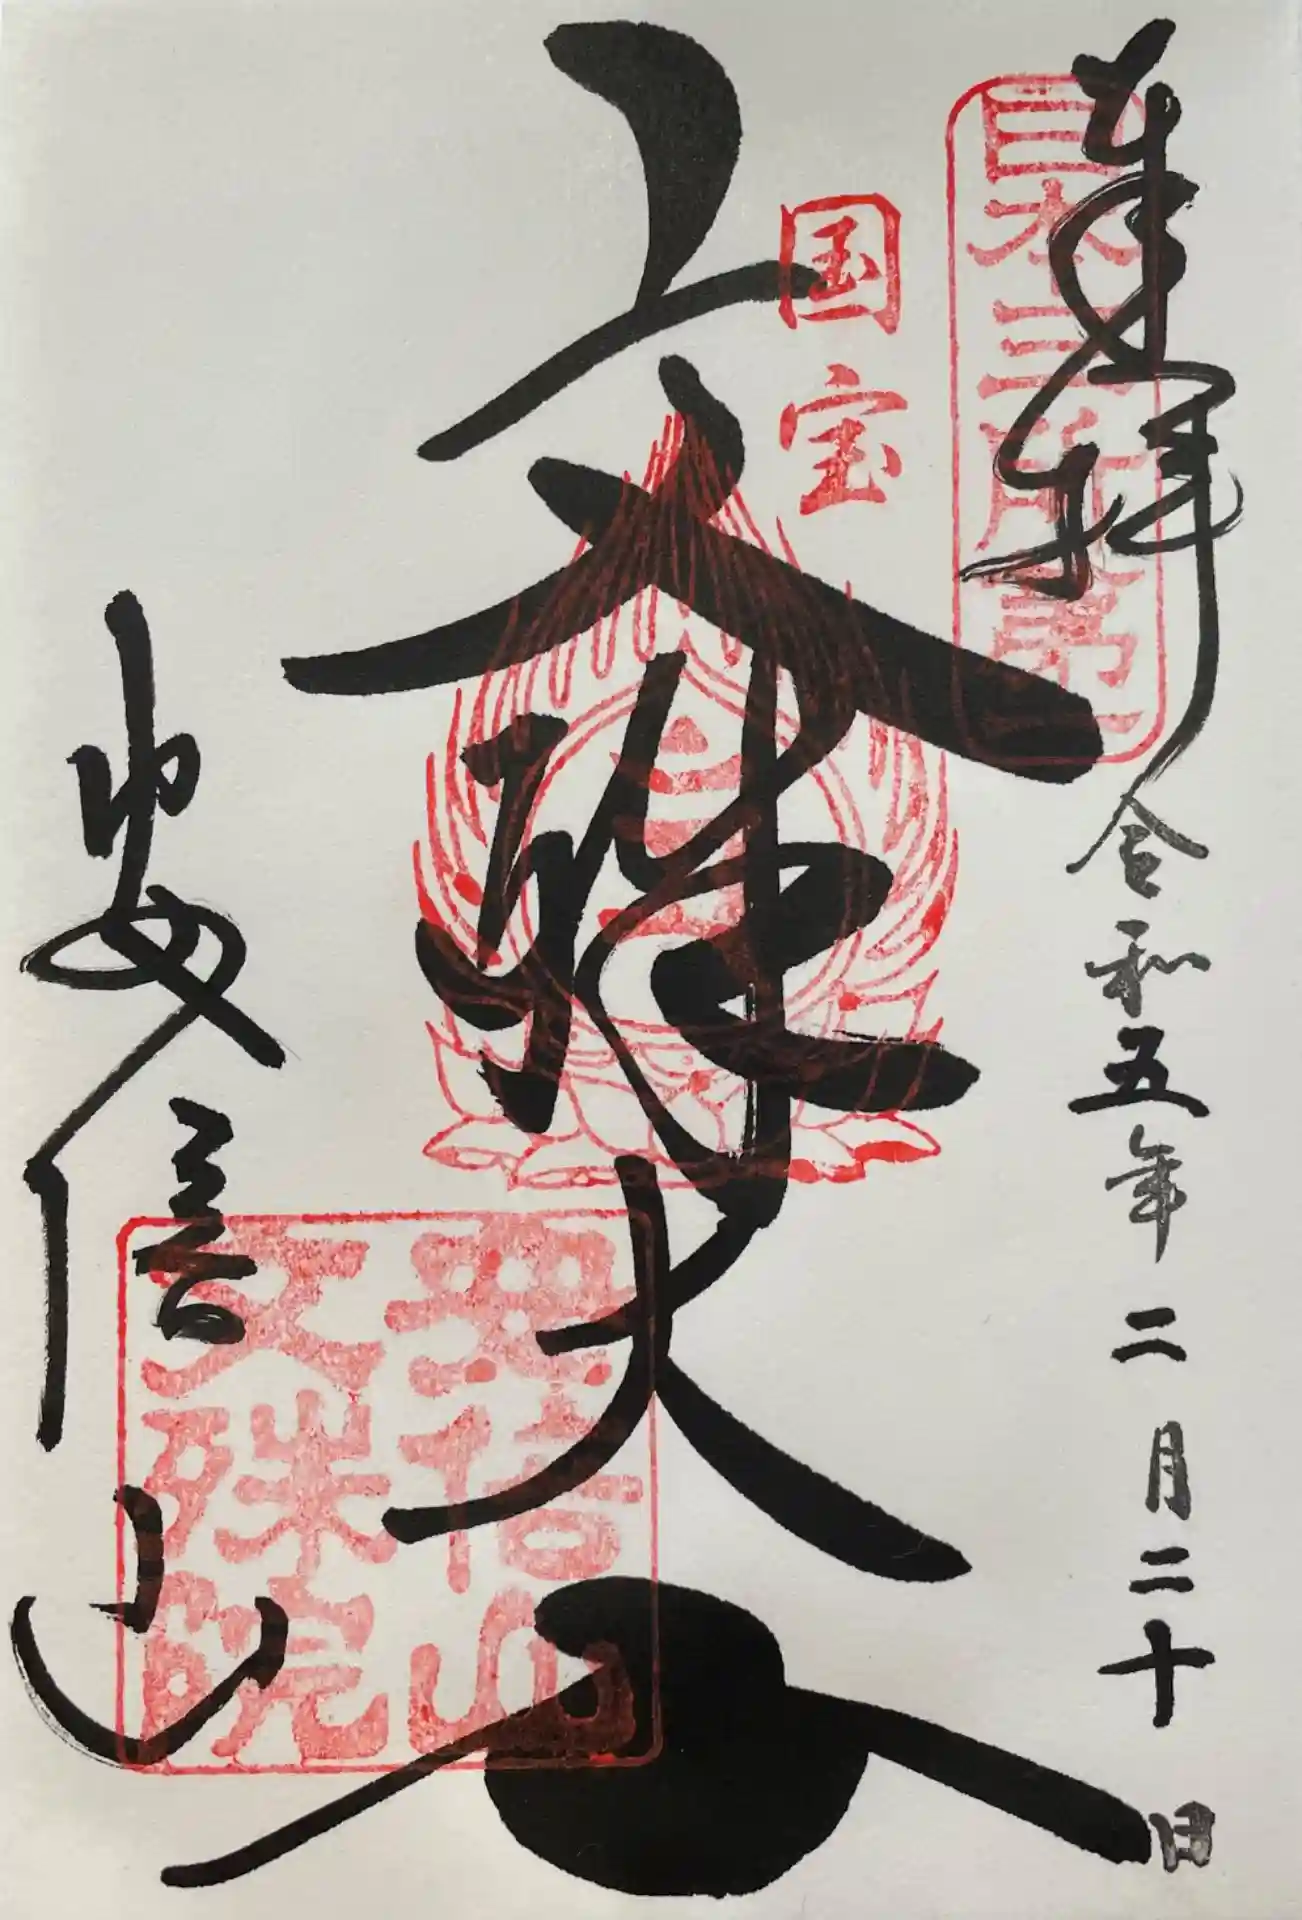 奉拝
令和五年二月二十日
日本三所第一
国宝
文殊大士
安倍山
安倍山
文殊院